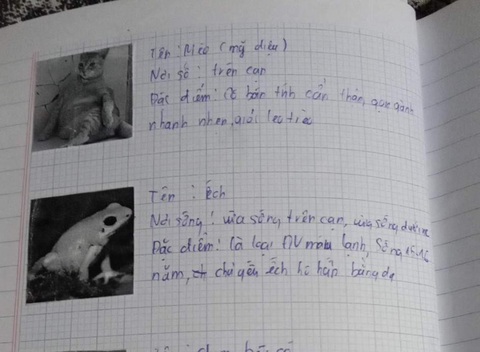 Tên : Mèo (mỹ diệu)
Nơi số : trên cạn
Đặc điểm: Có bản tính cẩn thận,
nhanh nhẹn, giỏi leo trèo
Tên : Ếch
Nơi sống : vừa sống trên cạn, vừa sống dưới
Đặc điểm: là loại ĐV máu lạnh, sống
năm, chủ yếu ếch hô hấp bằng da